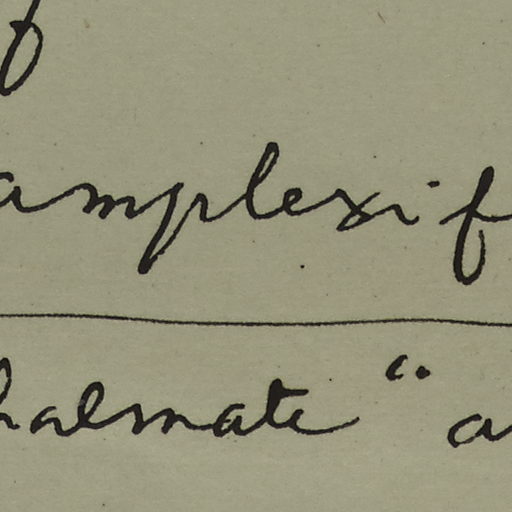 amplexif
halmate" a